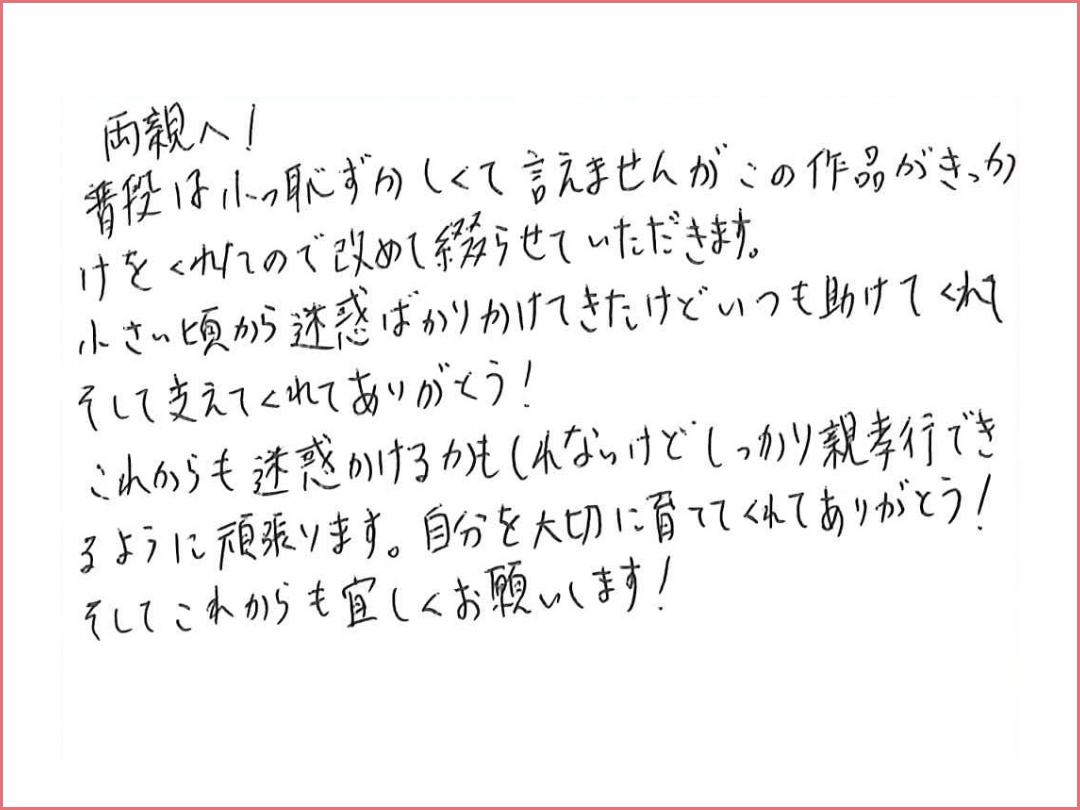 両親へ!
普段は小っ恥ずかしくて言えませんがこの作品がきっか
けをくれたので改めて綴らせていただきます。
小さい頃から迷惑ばかりかけてきたけどいつも助けてくれて
そして支えてくれてありがとう!
これからも迷惑かけるかもしれないけどしっかり親孝行でき
るように頑張ります。自分を大切に育ててくれてありがとう!
そしてこれからも宜しくお願いします!